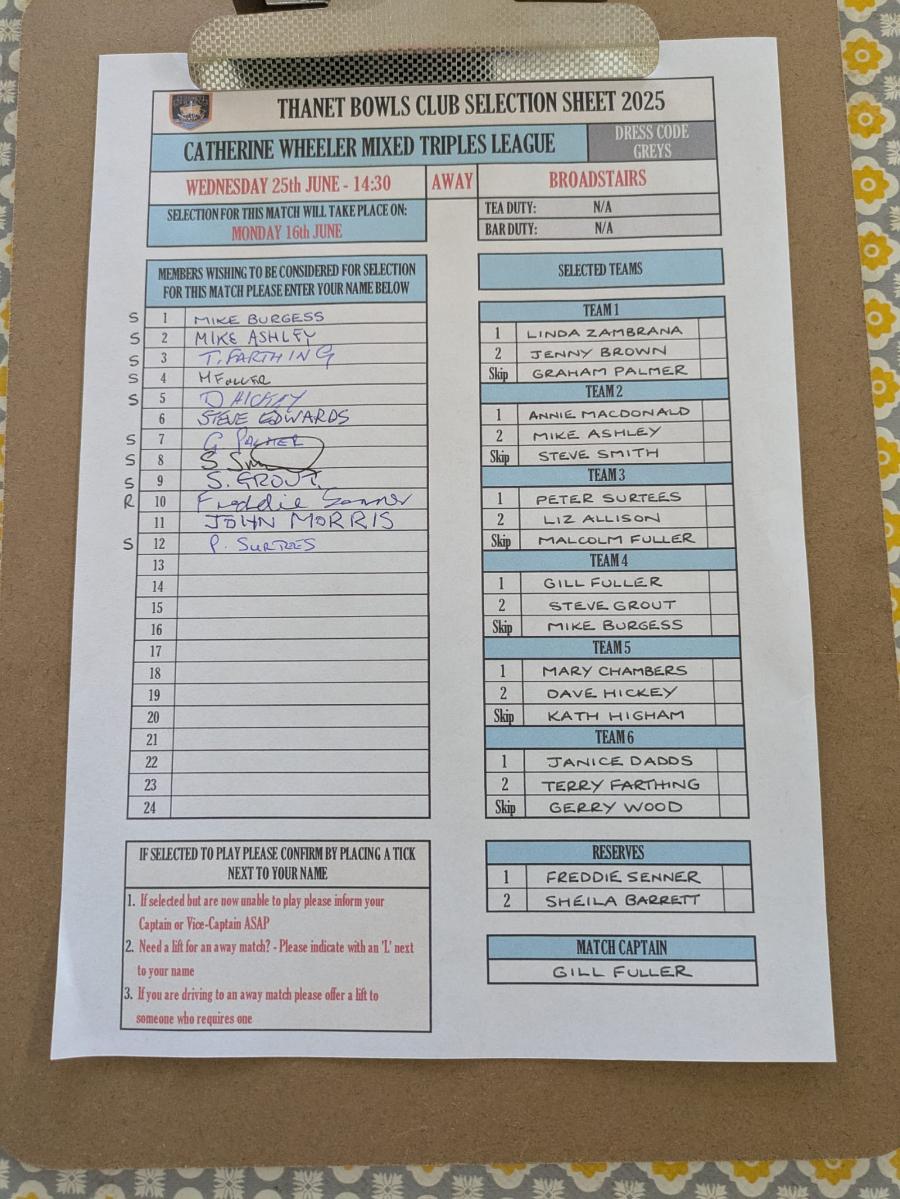 THANET BOWLS CLUB SELECTION SHEET 2025
CATHERINE WHEELER MIXED TRIPLES LEAGUE
DRESS CODE
GREYS
WEDNESDAY 25th JUNE - 14:30
AWAY
BROADSTAIRS
SELECTION FOR THIS MATCH WILL TAKE PLACE ON:
MONDAY 16th JUNE
TEA DUTY: N/A
BAR DUTY: N/A
MEMBERS WISHING TO BE CONSIDERED FOR SELECTION
FOR THIS MATCH PLEASE ENTER YOUR NAME BELOW
S 1 MIKE BURGESS
S 2 MIKE ASHLEY
S 3 T. FARTHING
S 4 M FULLER
S 5 D HICKEY
6 STEVE EDWARDS
S 7 G PALMER
S 8 S
S 9 S. GROUT
R 10 Freddie Senner
11 JOHN MORRIS
S 12 P. SURTEES
13
14
15
16
17
18
19
20
21
22
23
24
IF SELECTED TO PLAY PLEASE CONFIRM BY PLACING A TICK
NEXT TO YOUR NAME
1. If selected but are now unable to play please inform your
Captain or Vice-Captain ASAP
2. Need a lift for an away match? - Please indicate with an 'L' next
to your name
3. If you are driving to an away match please offer a lift to
someone who requires one
SELECTED TEAMS
TEAM 1
1 LINDA ZAMBRANA
2 JENNY BROWN
Skip GRAHAM PALMER
TEAM 2
1 ANNIE MACDONALD
2 MIKE ASHLEY
Skip STEVE SMITH
TEAM 3
1 PETER SURTEES
2 LIZ ALLISON
Skip MALCOLM FULLER
TEAM 4
1 GILL FULLER
2 STEVE GROUT
Skip MIKE BURGESS
TEAM 5
1 MARY CHAMBERS
2 DAVE HICKEY
Skip KATH HIGHAM
TEAM 6
1 JANICE DADDS
2 TERRY FARTHING
Skip GERRY WOOD
RESERVES
1 FREDDIE SENNER
2 SHEILA BARRETT
MATCH CAPTAIN
GILL FULLER